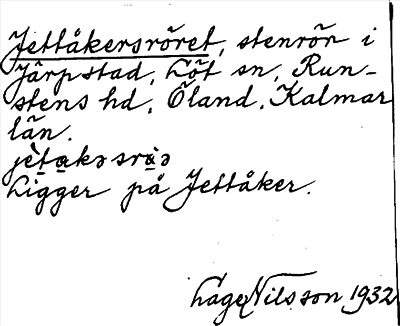 Jettåkersröret, stenrör i
Järpstad, Löt sn, Run-
stens hd, Öland, Kalmar
län.
Ligger på Jettåker.
Lage Nilsson 1932